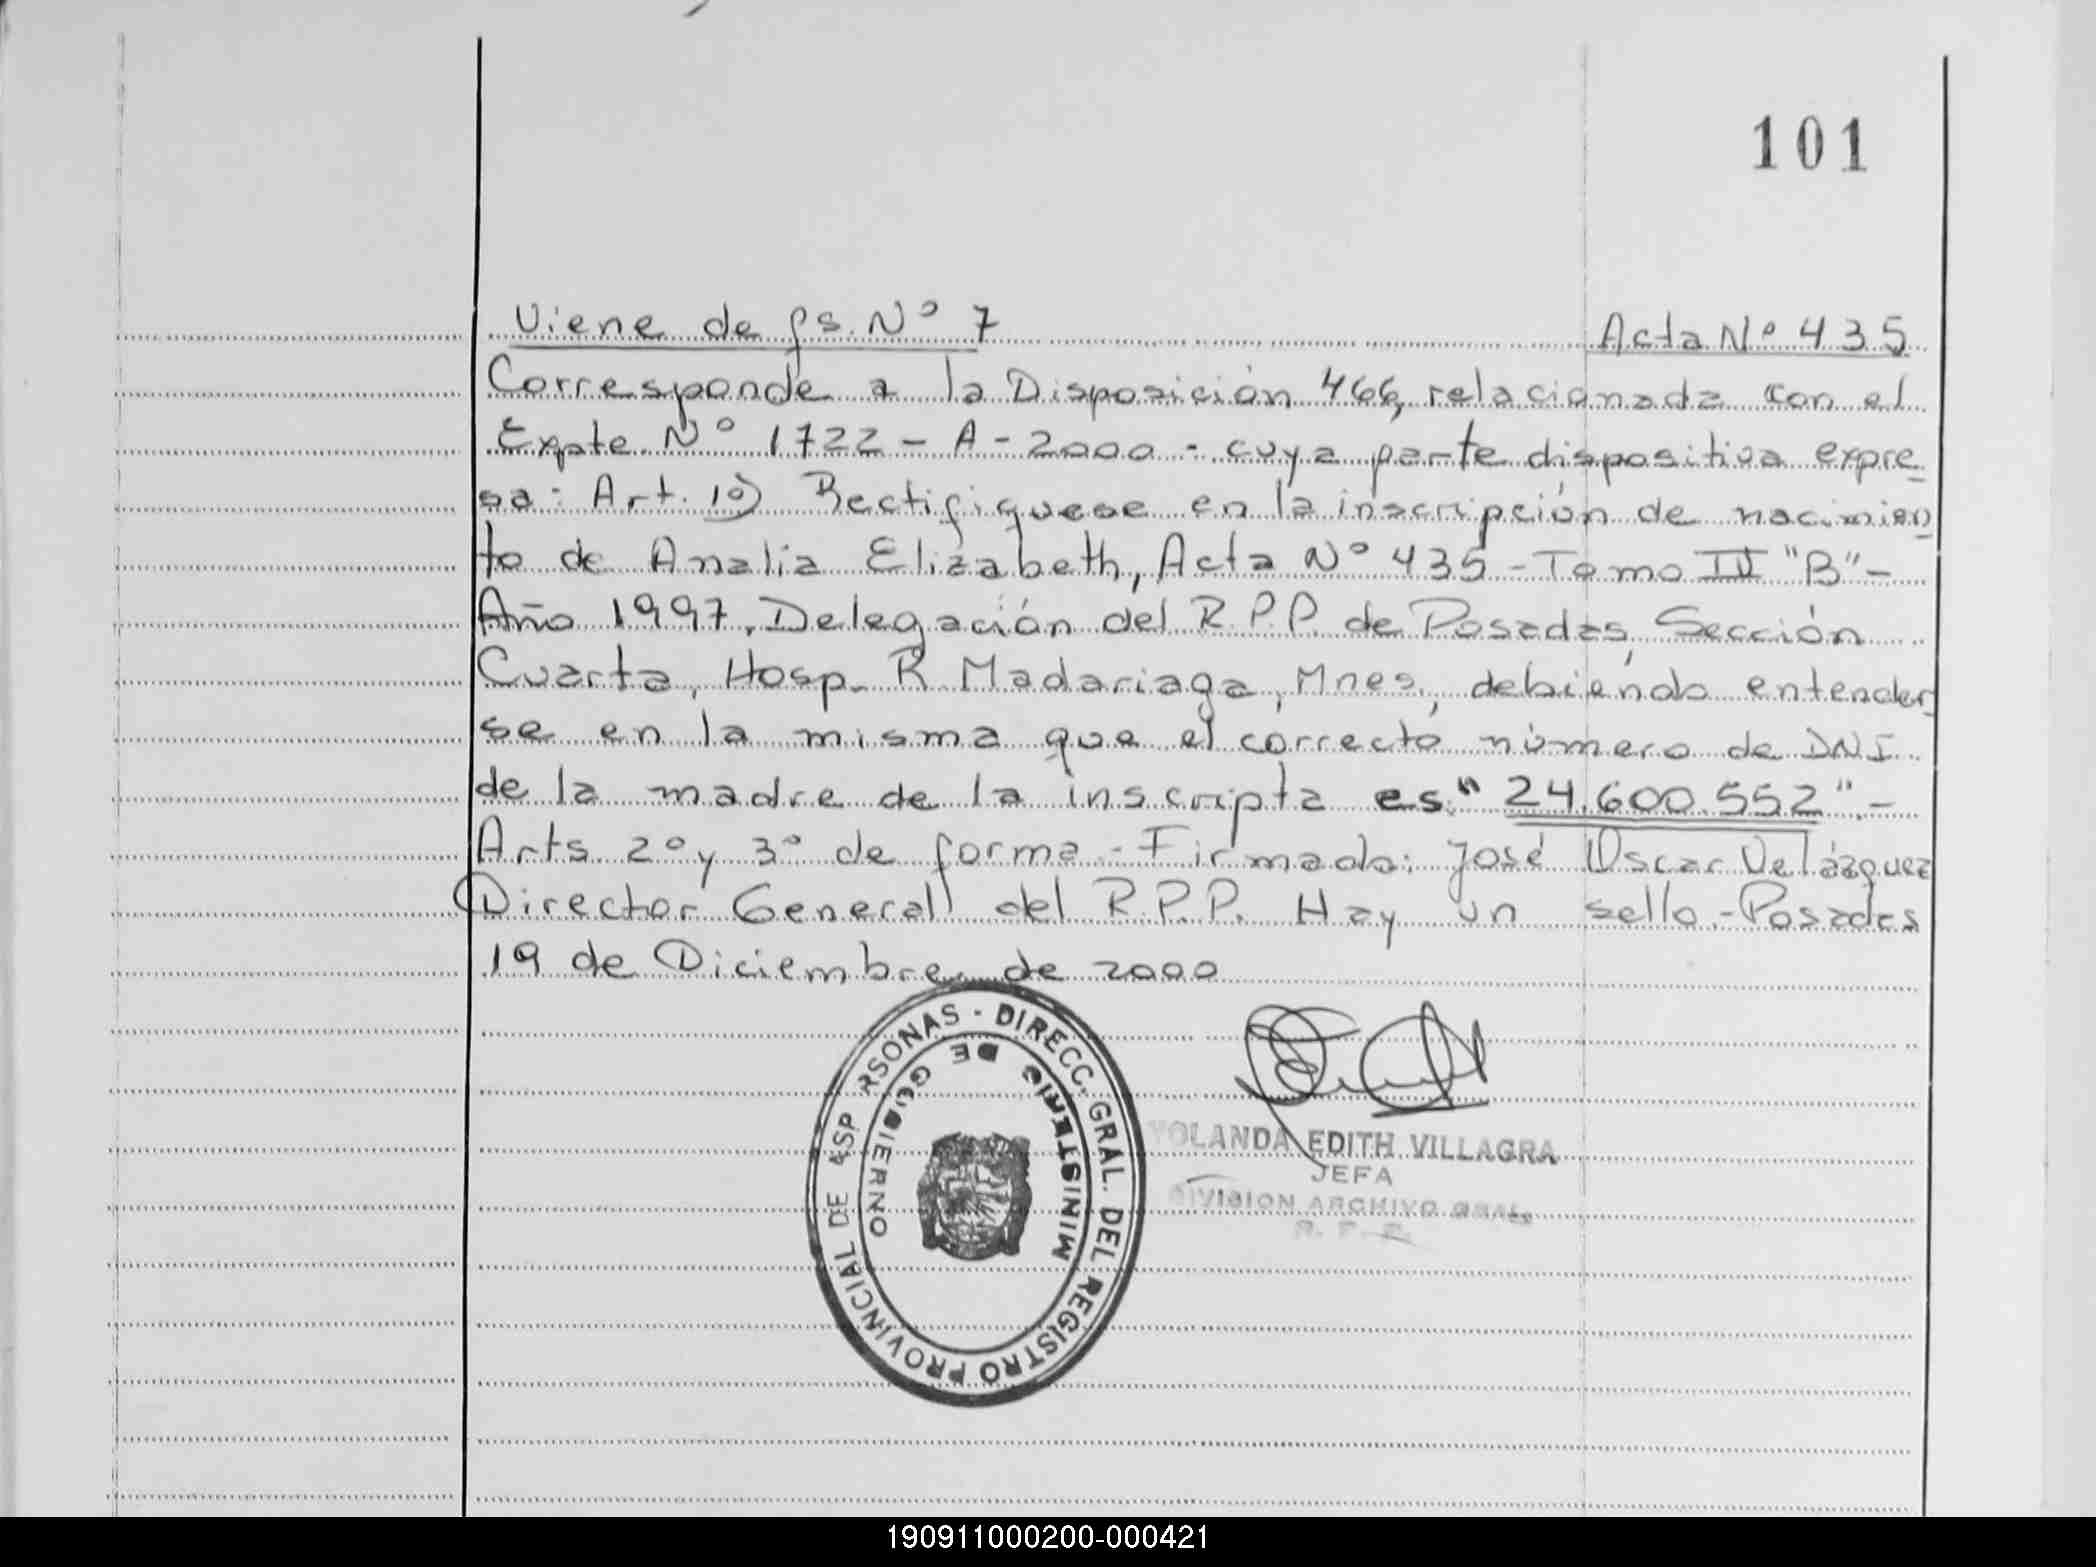 101
Viene de fs. Nº 7 Acta Nº 435
Corresponde a la Disposición 466, relacionada con el
Expte Nº 1722 - A - 2000 - cuya parte dispositiva expre
sa: Art. 1º) Rectifiquese en la inscripción de nacimien
to de Analia Elizabeth, Acta Nº 435 - Tomo IV "B" -
Año 1997, Delegación del R.P.P. de Posadas, Sección
Cuarta, Hosp. R Madariaga, Mnes, debiéndo entender
se en la misma que el correcto número de DNI
de la madre de la inscripta es "24.600.552" -
Arts 2º y 3º de forma - Firmado: José Oscar Velázquez
Director General del R.P.P. Hay un sello - Posadas
19 de Diciembre de 2000
RSONAS - DIRECC. GRAL. DEL REGISTRO PROVINCIAL DE
MINISTERIO DE GOBIERNO
YOLANDA EDITH VILLAGRA
JEFA
DIVISION ARCHIVO GRAL.
R. P. P.
190911000200-000421